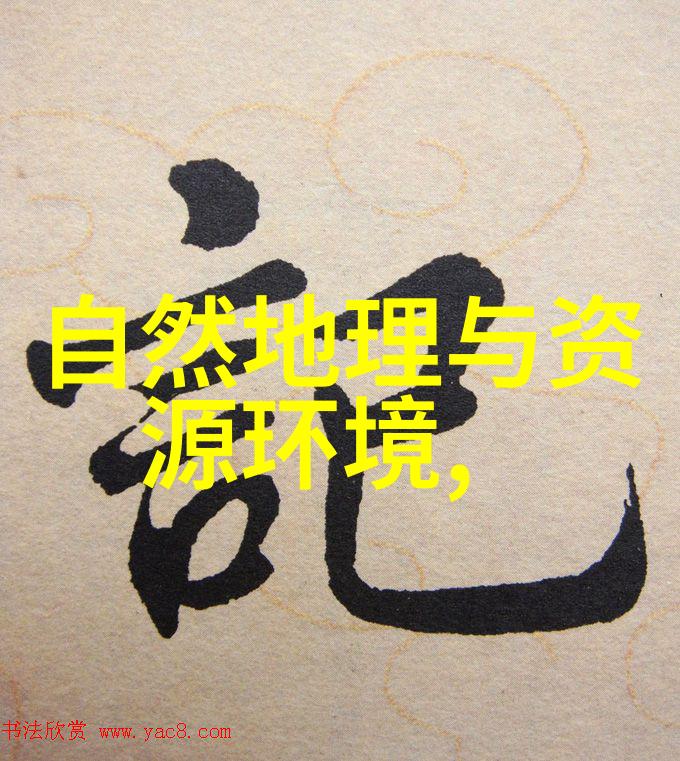 記
自然地理与资
源环境,
书法欣赏 www.yac8.com